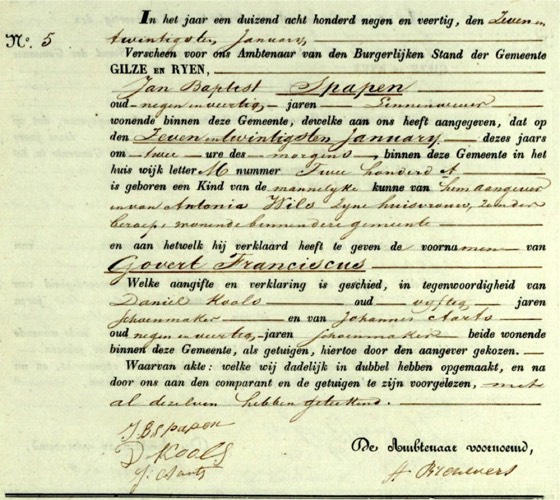 In het jaar een duizend acht honderd negen en veertig, den Zeven en
N.o 5
twintigsten January,
Verscheen voor ons Ambtenaar van den Burgerlijken Stand der Gemeente
GILZE EN RYEN,
Jan Baptist Spapen
oud negen en veertig, jaren Linnenwever
wonende binnen deze Gemeente, dewelke aan ons heeft aangegeven, dat op
den Zeven en twintigsten January dezes jaars
om twee ure des morgens, binnen deze Gemeente in het
huis wijk letter M nummer Twee honderd A
is geboren een Kind van de mannelyke kunne van hem aangever
en van Antonia Wils zyne huisvrouw, zonder
beroep, wonende binnen deze gemeente
en aan hetwelk hij verklaard heeft te geven de voornamen van
Govert Franciscus
Welke aangifte en verklaring is geschied, in tegenwoordigheid van
Daniel Kools oud vyftig jaren
schoenmaker en van Johannes Aarts
oud negen en veertig, jaren schoenmaker beide wonende
binnen deze Gemeente, als getuigen, hiertoe door den aangever gekozen.
Waarvan akte: welke wij dadelijk in dubbel hebben opgemaakt, en na
door ons aan den comparant en de getuigen te zijn voorgelezen, met
al dezelven hebben geteekend.
J B Spapen
D Kools
J: Aarts
De Ambtenaar voornoemd,
A Brouwers